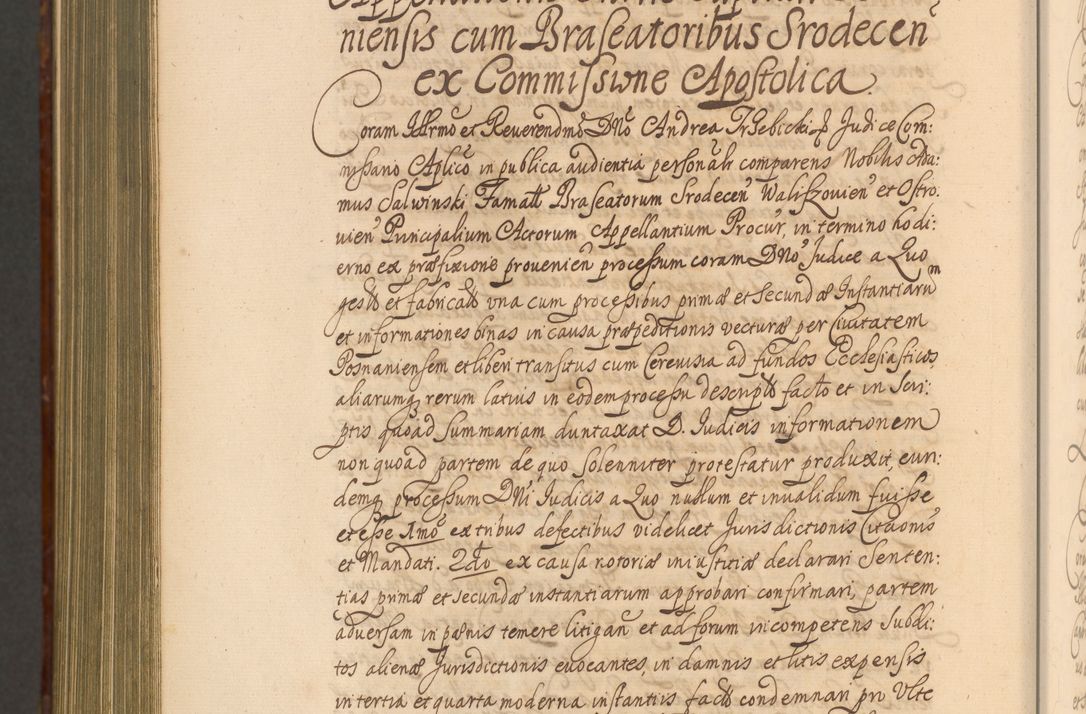 niensis cum Braseatoribus Srodecen̄
ex Commissione Apostolica.
Coram Illrmo et Reverendmo DNo Andrea Trzebicki Judice Com:
missario Aplico in publica audientia personalr comparens Nobilis Ada:
mus Salwinski Famatt Braseatorum Srodecen̄ Waliszovien̄ et Ostro:
vien̄ Principalium Actorum Appellantium Procur, in termino hodi:
erno ex præfixione provenien̄ processum coram DNo Judice a Quo
gestt et fabricatt una cum processibus primæ et secundæ Instantiarum
et informationes binas in causa præpeditionis vecturæ per Civitatem
Posnaniensem et liberi transitus cum Cerevisia ad fundos Ecclesiasticos,
aliarumq rerum latius in eodem processu descriptt facto et in Scri:
ptis quoad Summariam duntaxat D. Iudicis informationem
non quoad partem de quo solenniter protestatur produxit, eun:
demq processum DNi Judicis a Quo nullum et invalidum fuisse
et esse 1mo ex tribus defectibus videlicet Jurisdictionis Citaonis
et Mandati. 2do ex causa notoriæ iniustitiæ declarari Senten:
tias primæ et secundæ instantiarum approbari confirmari, partem
adversam in pænis temere litigan̄ et ad forum incompetens Subdi:
tos alienæ Jurisdictionis evocantes, in damnis et litis expensis
in tertia et quarta moderna instantiis factt condemnari pro Ulte